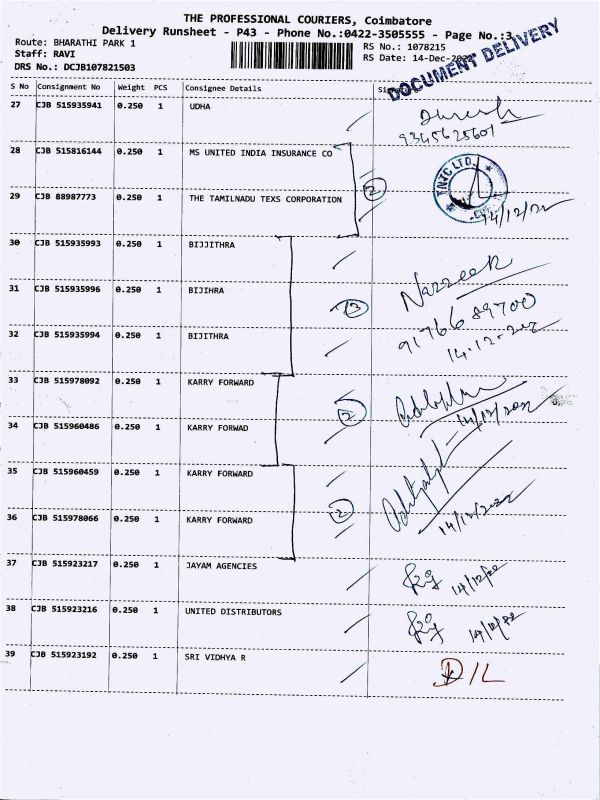 THE PROFESSIONAL COURIERS, Coimbatore
Delivery Runsheet - P43 - Phone No.:0422-3505555 - Page No.:3
Route: BHARATHI PARK 1
RS No.: 1078215
Staff: RAVI
RS Date: 14-Dec-
DRS No.: DCJB107821503
DOCUMENT DELIVERY
S No Consignment No Weight PCS Consignee Details
27 CJB 515935941 0.250 1 UDHA
9345625601
28 CJB 515816144 0.250 1 MS UNITED INDIA INSURANCE CO
2
TNTC LTD.
29 CJB 88987773 0.250 1 THE TAMILNADU TEXS CORPORATION
14/12/22
30 CJB 515935993 0.250 1 BIJJITHRA
31 CJB 515935996 0.250 1 BIJIHRA
3
9176689700
32 CJB 515935994 0.250 1 BIJITHRA
33 CJB 515978092 0.250 1 KARRY FORWARD
2
14/12/2022
34 CJB 515960486 0.250 1 KARRY FORWAD
35 CJB 515960459 0.250 1 KARRY FORWARD
2
36 CJB 515978066 0.250 1 KARRY FORWARD
14/12/2022
37 CJB 515923217 0.250 1 JAYAM AGENCIES
14/12/22
38 CJB 515923216 0.250 1 UNITED DISTRIBUTORS
14/12/22
39 CJB 515923192 0.250 1 SRI VIDHYA R
D/L